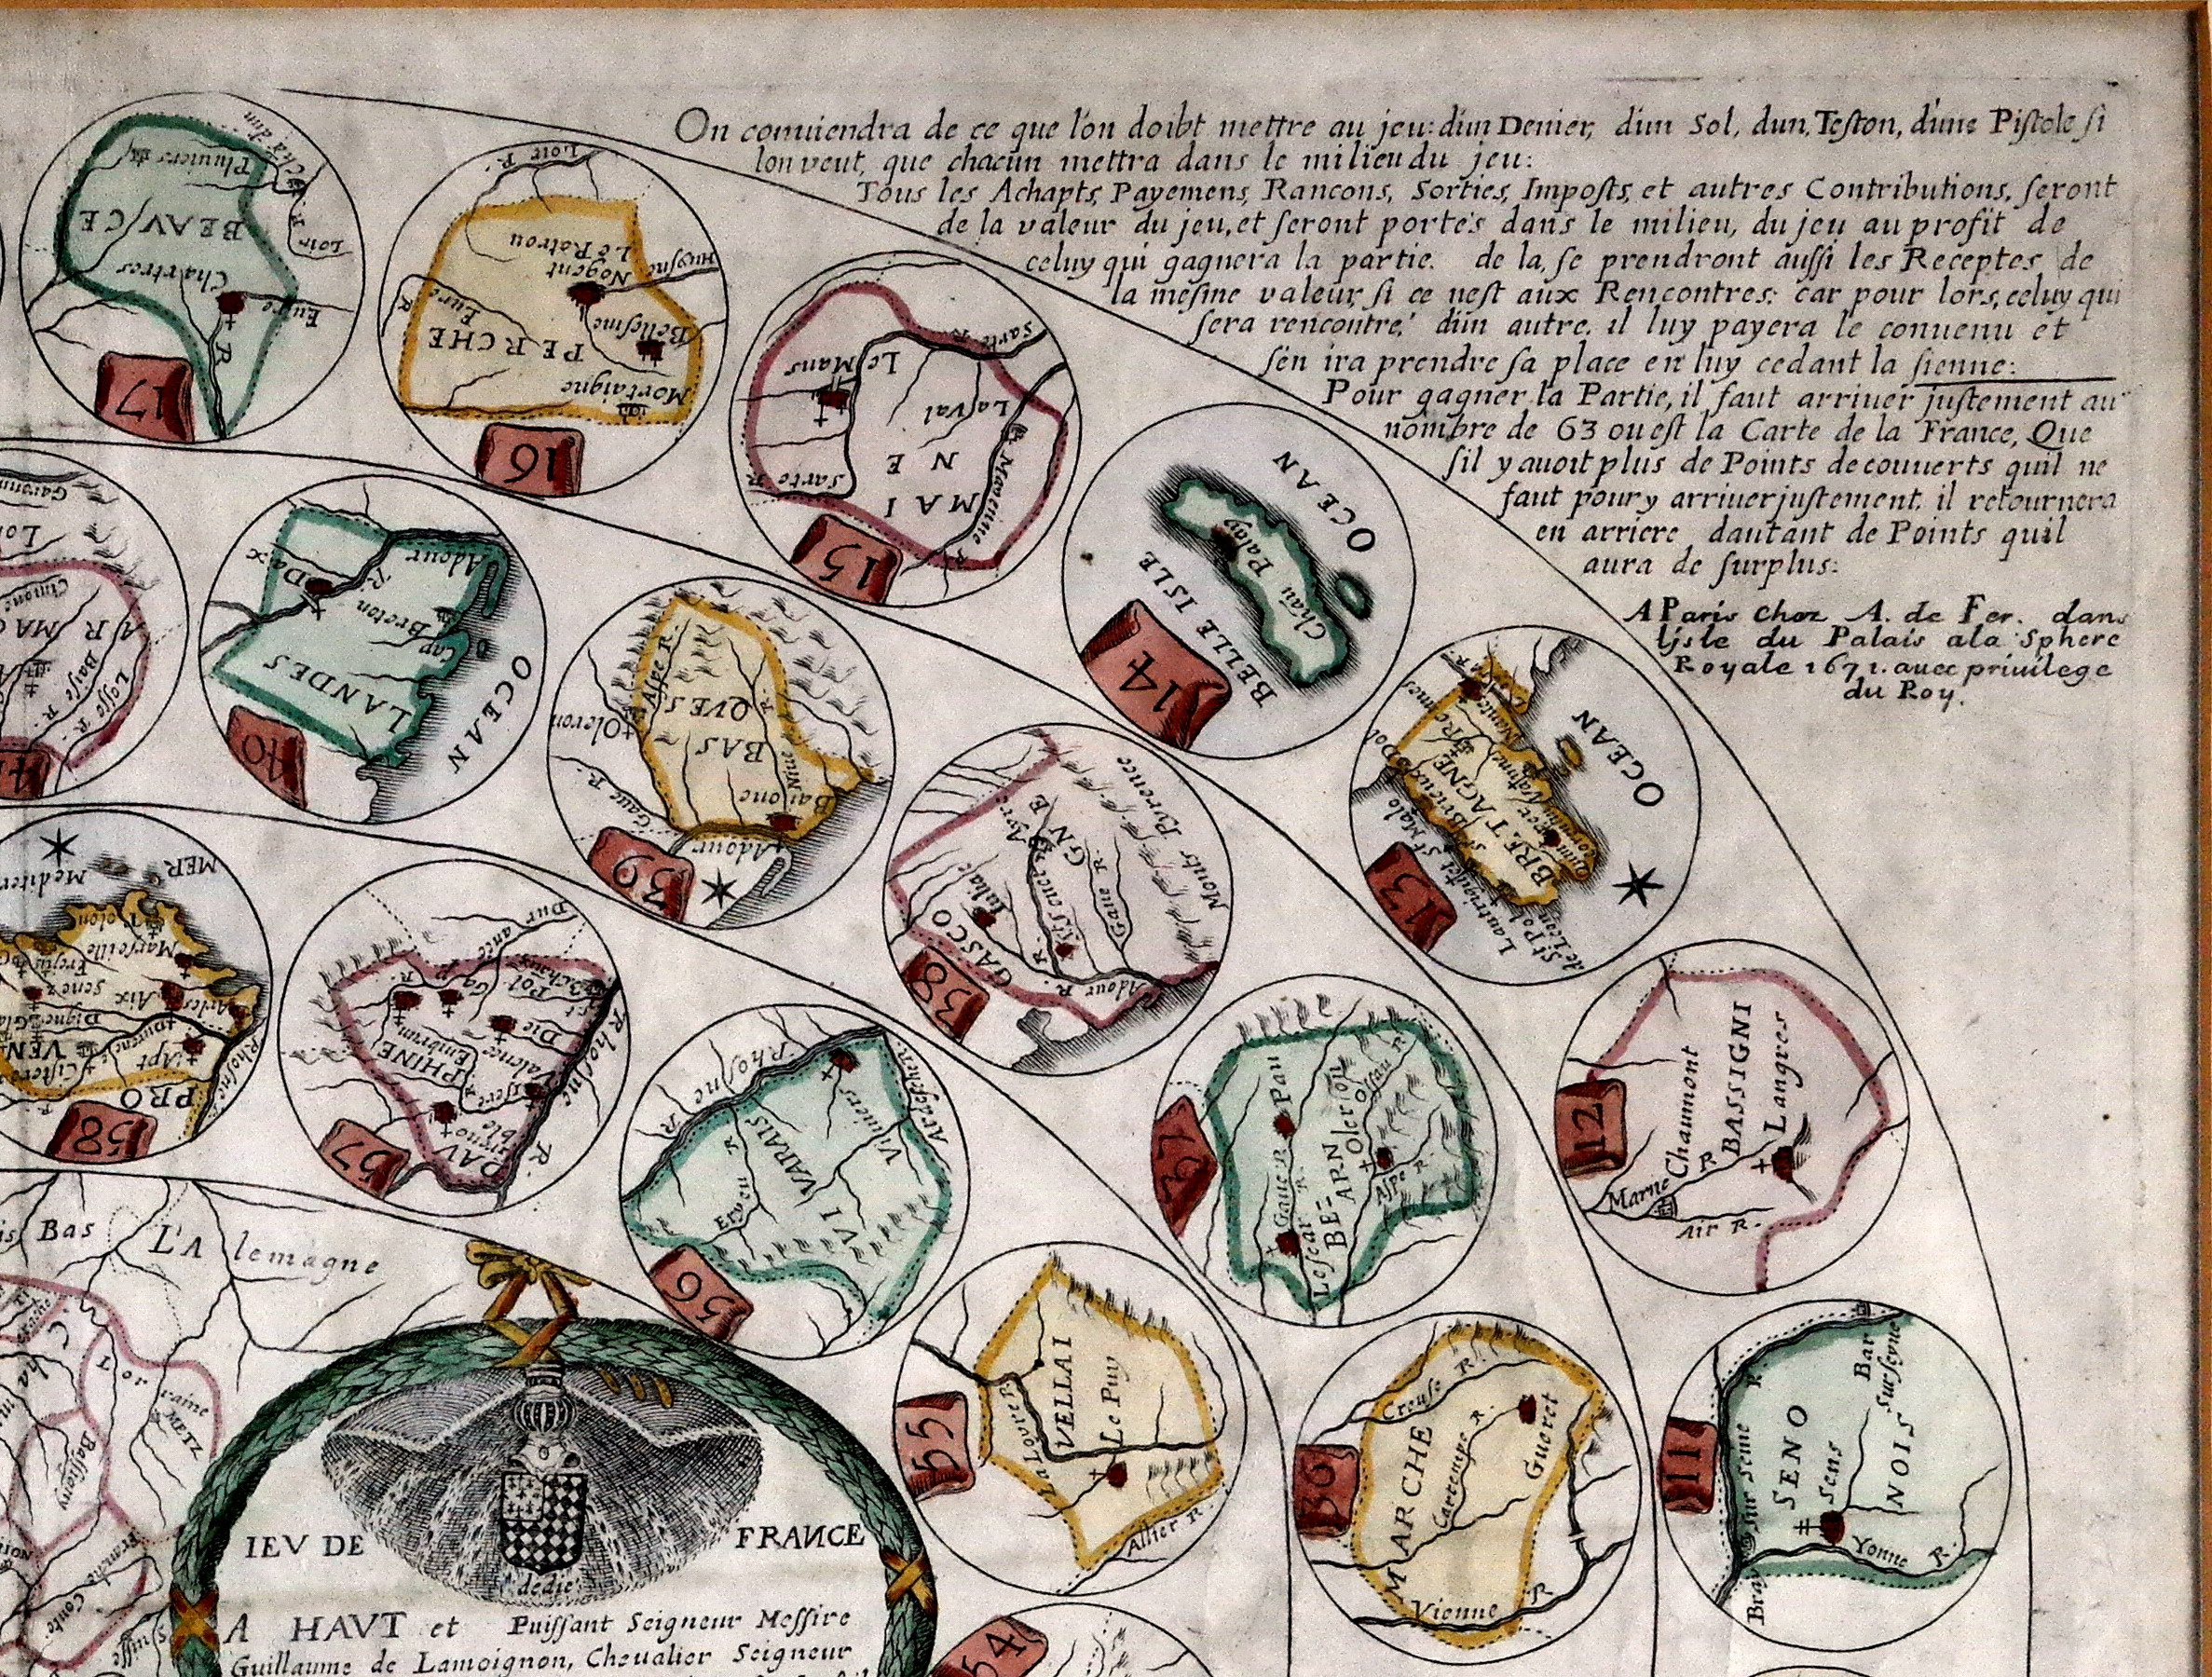 On conuiendra de ce que l'on doibt mettre au jeu: d'un Denier, d'un Sol, d'un, Teston, d'une Pistole si
l'on veut, que chacun mettra dans le milieu du jeu:
Tous les Achapts, Payemens, Rancons, Sorties, Imposts, et autres Contributions, seront
de la valeur du jeu, et seront portés dans le milieu, du jeu au profit de
celuy qui gagnera la partie. de la, se prendront aussi les Receptes de
la mesme valeur, si ce nest aux Rencontres: car pour lors, celuy qui
sera rencontre' d'un autre, il luy payera le conuenu et
s'en ira prendre sa place en luy cedant la sienne:
Pour gagner la Partie, il faut arriuer justement au
nombre de 63 ou est la Carte de la France, Que
s'il y auoit plus de Points decouuerts quil ne
faut pour y arriuer justement, il retournera
en arriere dautant de Points quil
aura de surplus:
A Paris chez A. de Fer. dans
l'isle du Palais a la Sphere
Royale 1671. auec priuilege
du Roy.
17
BEAVCE
Chartres
Pluuiers
Eure
R
Loir
16
PERCHE
Nogent
Le Rotrou
Bellesme
Mortaigne
Huysne
Eure
R
Loir R.
15
MAINE
Le Mans
La Val
Sarte R.
Sarte R
Maienne
R
14
BELLE ISLE
Chau Palais
OCEAN
13
BRETAGNE
OCEAN
Rennes
Nantes
Dol
St Malo
St Brieux
Vannes
St Pol
de Leon
12
BASSIGNI
Langres
Chaumont
Marne
R
Air R.
11
SENO
NOIS
Sens
Bar
sur seyne
Bray sur Seine R
Yonne R.
40
LANDES
Dax
Cap Breton
Adour
R.
OCEAN
39
BAS
QVES
Oleron
Aspe R.
Baione
Niue
R.
Gaue R.
Adour
38
GASCO
GNE
Ayre
Adour
R.
Gaue R.
Monts Pyrence
37
BE=
ARN
Pau
Oleron
Lescar
Gaue R.
Ossau R
Aspe R.
36
MARCHE
Gueret
Creuse R.
Cartempe R.
Vienne R
58
PRO
VEN
MER
Mediter
Tolon
Marseille
Aix
Arles
Apt
Digne
Senez
Rhosne
57
DAV
PHINE
Embrun
Gap
Die
Valence
Grenoble
Rhosne
R.
56
VI
VARAIS
Viuiers
Rhosne
R
Ardesche R.
55
VELLAI
Le Puy
La Loire R
Allier R
54
L'Alemagne
Bas
Lorraine
METZ
Bassigny
Franche Conte
Suisse
IEV DE FRANCE
dedie
A HAVT et Puissant Seigneur Messire
Guillaume de Lamoignon, Cheualier Seigneur